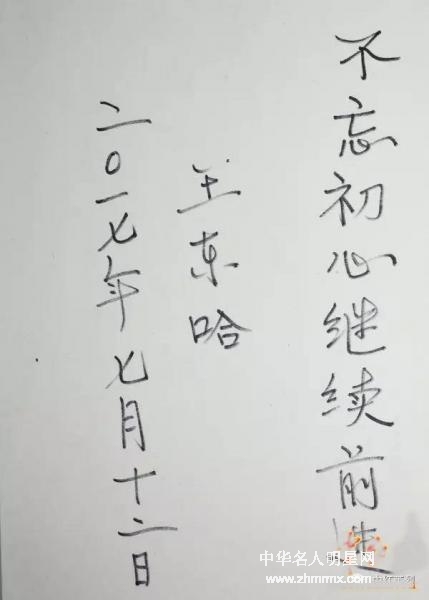 不忘初心继续前进
王东哈
二〇一七年七月十二日
中华名人明星网
www.zhmmmx.com